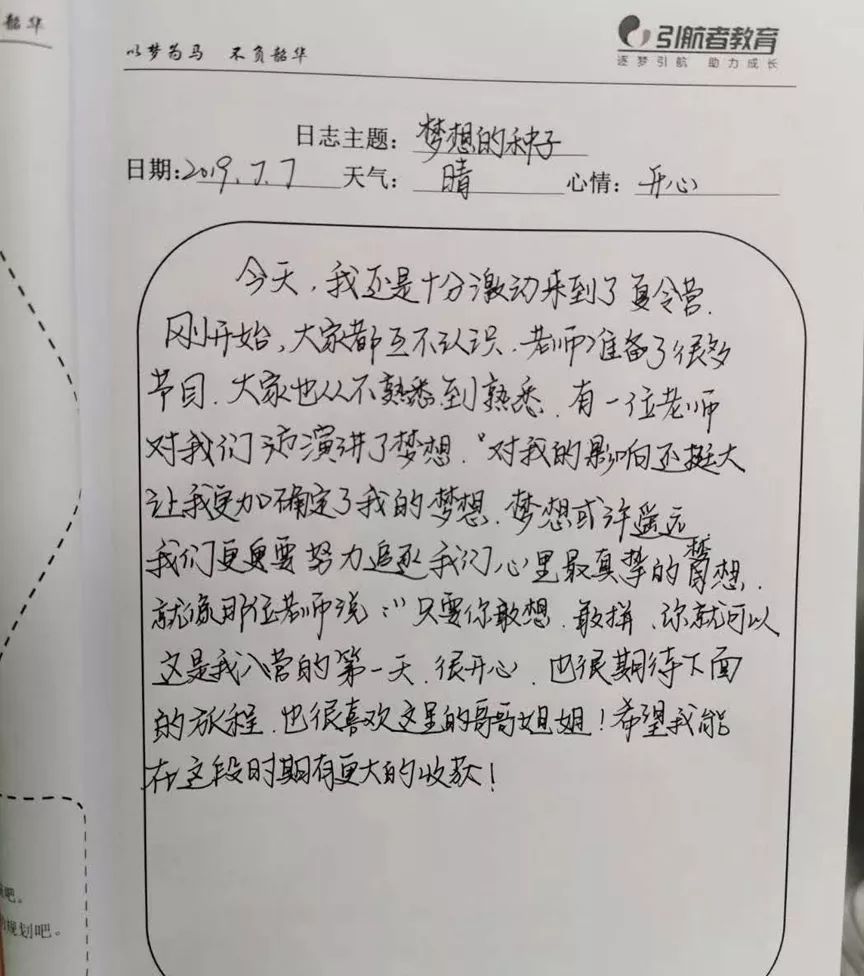 韶华
以梦为马 不负韶华
引航者教育
逐梦引航 助力成长
日志主题: 梦想的种子
日期:2019.7.7 天气: 晴 心情: 开心
今天,我还是十分激动来到了夏令营.
刚开始,大家都互不认识.老师准备了很多
节目.大家也从不熟悉到熟悉.有一位老师
对我们演讲了梦想."对我的影响还挺大
让我更加确定了我的梦想.梦想或许遥远
我们更要努力追逐我们心里最真挚的梦想.
就像那位老师说:"只要你敢想.敢拼.你就可以
这是我入营的第一天.很开心.也很期待下面
的旅程.也很喜欢这里的哥哥姐姐!希望我能
在这段时期有更大的收获!
吧。
的规划吧。